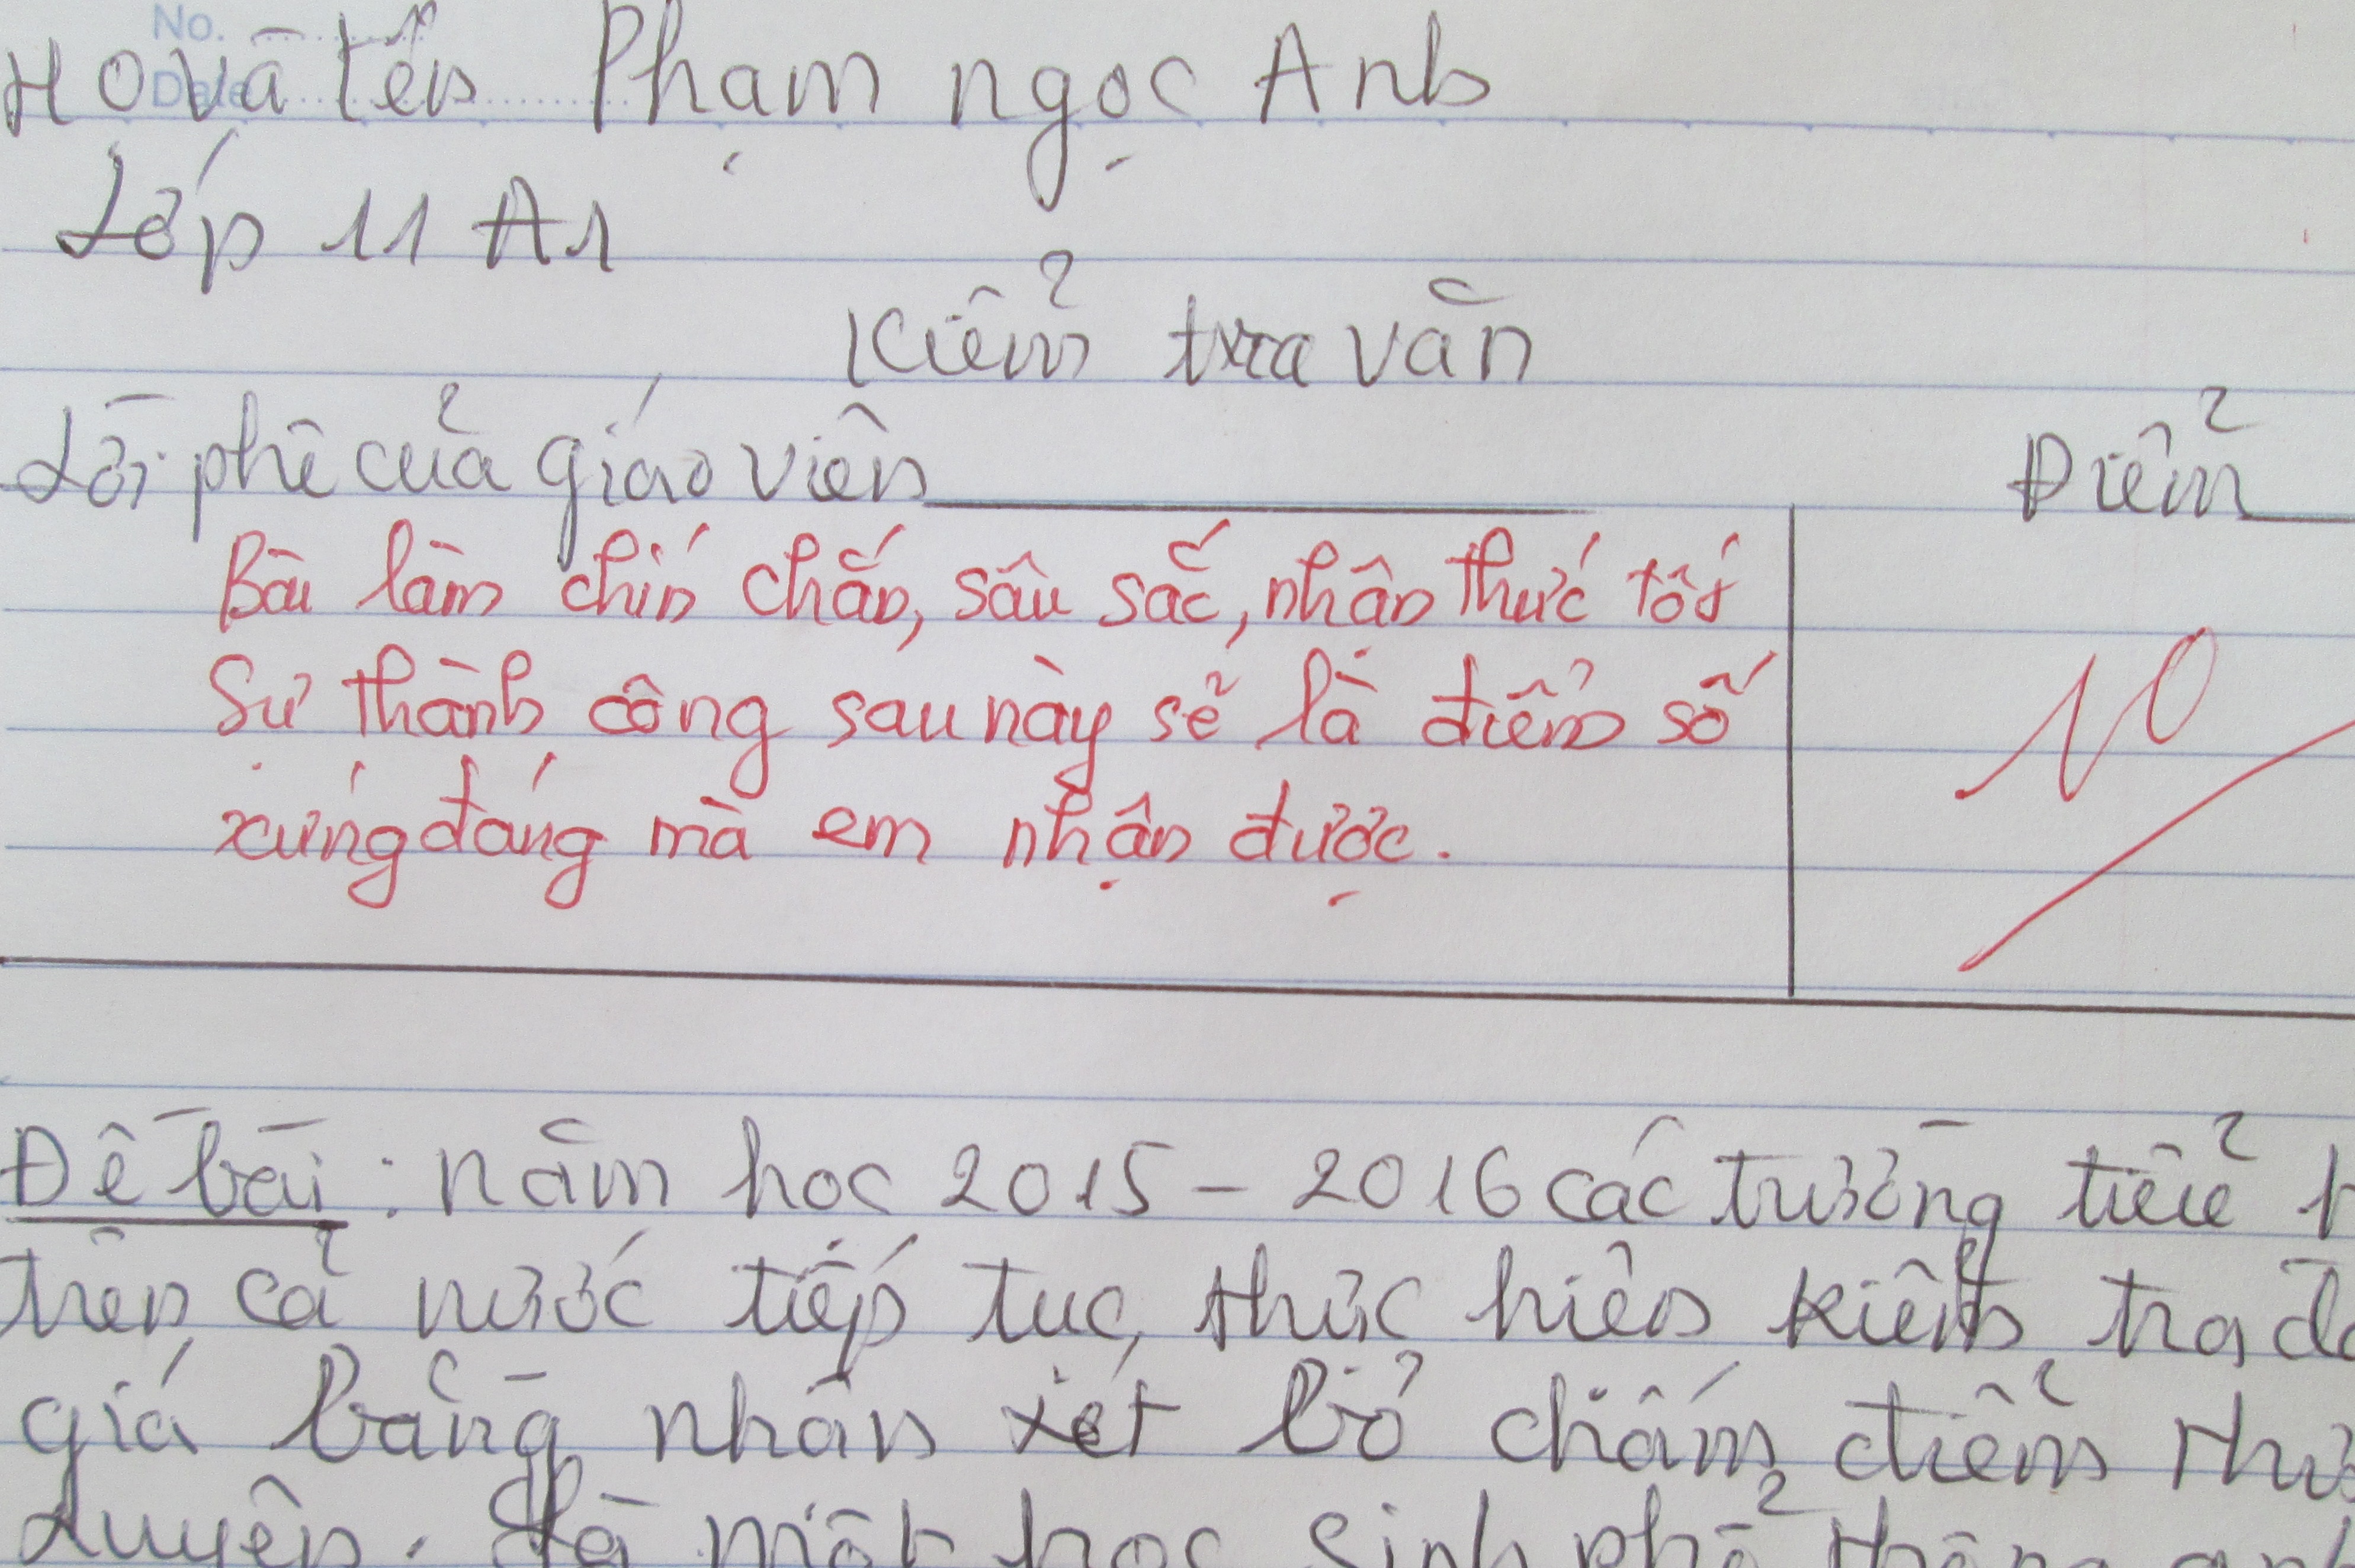 No.
Date
Họ và tên Phạm ngọc Anh
Lớp 11 A1
Kiểm tra văn
Lời phê của giáo viên Điểm
Bài làm chín chắn, sâu sắc, nhận thức tốt
Sự thành công sau này sẽ là điểm số
xứng đáng mà em nhận được.
10
Đề bài: năm học 2015 - 2016 các trường tiểu
trên cả nước tiếp tục thực hiện kiểm tra
giá bằng nhận xét bỏ chấm điểm
duyên. Là một học sinh phổ thông